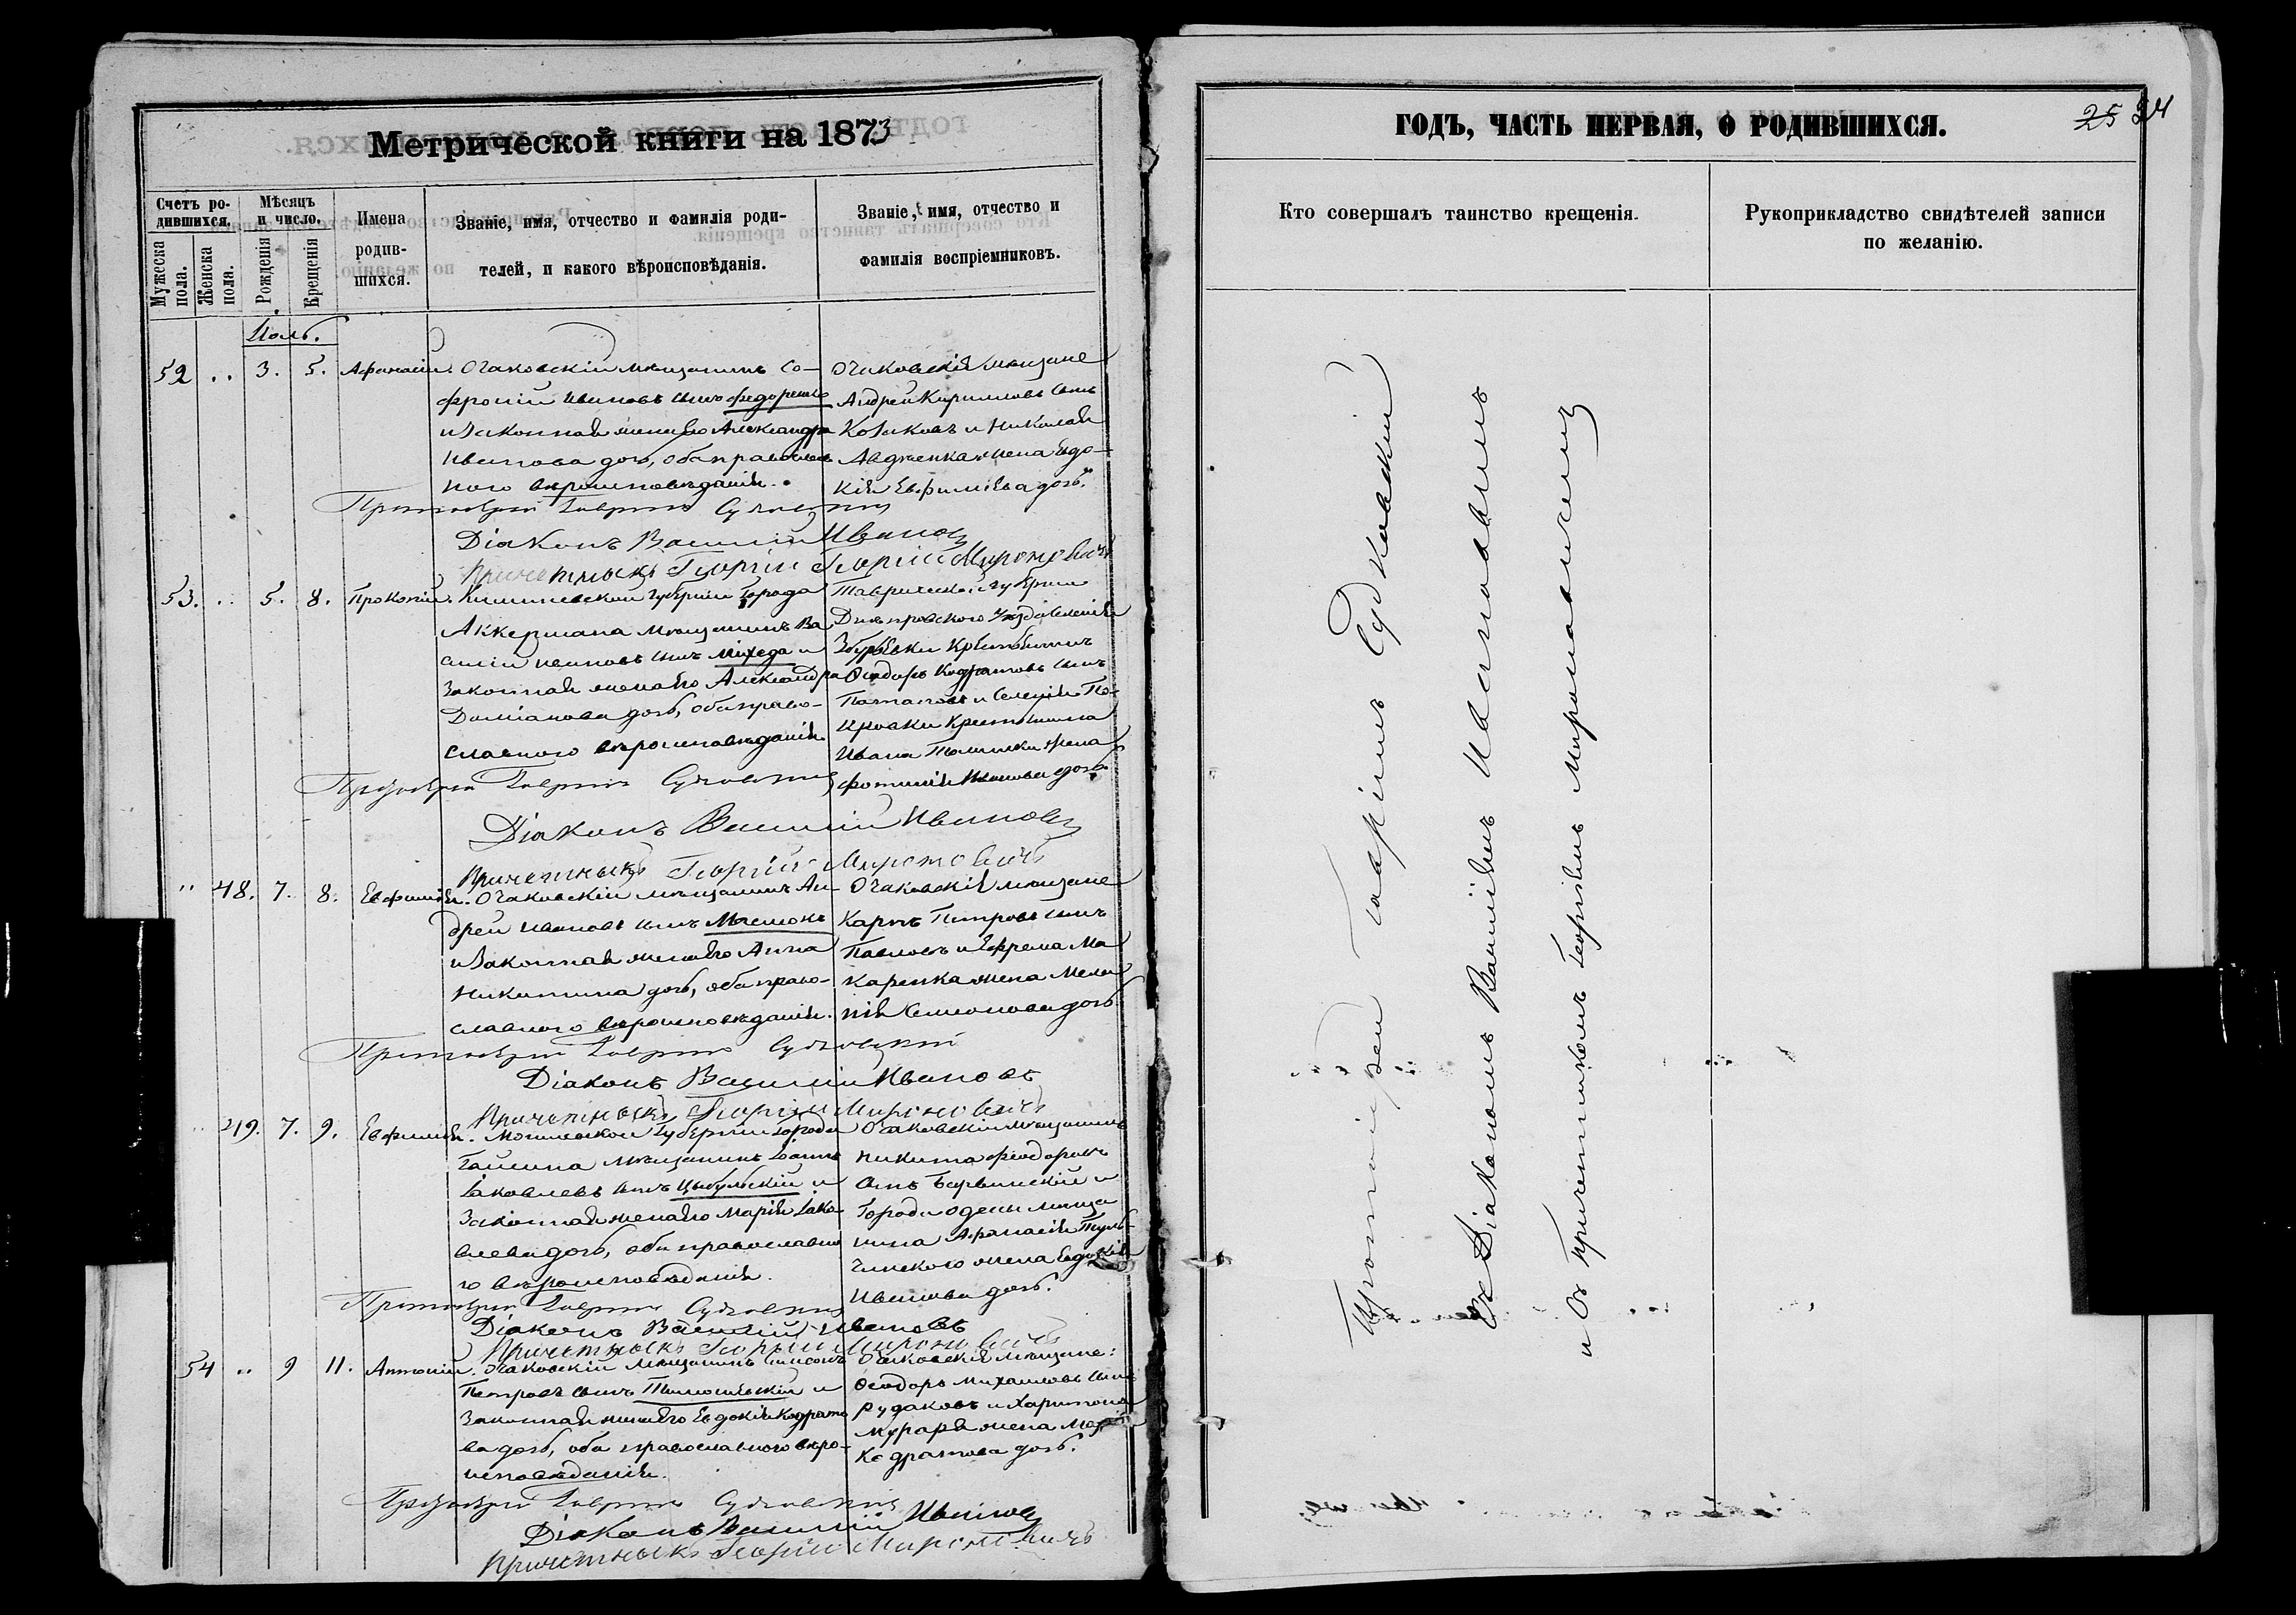 Метрической книги на 1873
Счетъ ро-
дившихся.
Мужеска
пола.
Женска
пола.
Мѣсяцъ
и число.
Рожденія
Крещенія
Имена
родив-
шихся.
Званіе, имя, отчество и фамилія роди-
телей, и какого вѣроисповѣданія.
Званіе, имя, отчество и
фамилія воспріемниковъ.
Іюль.
52 .. 3. 5. Афанасій. Очаковскій мѣщанинъ Со-
фроній Ивановъ сынъ Федоренко
и законная жена его Александра
Иванова дочь, оба православ
ного вѣроисповѣданія.
Очаковскія мѣщане
Андрей Кирилловъ сынъ
Козаковъ и Николая
жена Евдо-
кія Евфиміева дочь.
Протоіерей Гавріилъ Судковскій
Діаконъ Василій Ивановъ
Причетникъ Георгій Георгій Мироновичъ
53. .. 5. 8. Прокопій. Кишиневской губерніи города
Аккермана мѣщанинъ Ва
силій Ивановъ сынъ Міхеда и
законная жена его Александра
Даміанова дочь, оба право-
славного вѣроисповѣданія.
Таврической губерніи
Днѣпровского уѣзда селенія
Збурьевки
Феодоръ Кодратовъ сынъ
и селенія По-
кровки крестьянина
Ивана жена
Фотинія Иванова дочь.
Протоіерей Гавріилъ Судковскій
Діаконъ Василій Ивановъ
Причетникъ Георгій Мироновичъ
.. 48. 7. 8. Евфимія. Очаковскій мѣщанинъ Ан-
дрей Ивановъ сынъ
и законная жена его Анна
Никитина дочь, оба право-
славного вѣроисповѣданія.
Очаковскія мѣщане
Карпъ Петровъ сынъ
Павловъ и Ефрема Ма
каренка жена Мела
нія Симонова дочь.
Протоіерей Гавріилъ Судковскій
Діаконъ Василій Ивановъ
Причетникъ Георгій Мироновичъ
.. 49. 7. 9. Евфимія. Могилевской губерніи города
мѣщанинъ Іоаннъ
Іаковлевъ сынъ Цыбульскій и
законная жена его Марія Іако-
влева дочь, оба православно
го вѣроисповѣданія.
Очаковскій мѣщанинъ
Никита Феодоровъ
сынъ и
города Одесы мѣща
нина Афанасія Туль-
чинского жена Евдокія
Иванова дочь.
Протоіерей Гавріилъ Судковскій
Діаконъ Василій Ивановъ
Причетникъ Георгій Мироновичъ
54 .. 9 11. Антоній. Очаковскій мѣщанинъ Симеонъ
Петровъ сынъ и
законная жена его Евдокія Кодрато
ва дочь, оба православного вѣро-
исповѣданія.
Очаковскія мѣщане:
Феодоръ Михаиловъ сынъ
Рудаковъ и Харитона
Мураря жена Марія
Кодратова дочь.
Протоіерей Гавріилъ Судковскій
Діаконъ Василій Ивановъ
Причетникъ Георгій Мироновичъ
ГОДЪ, ЧАСТЬ ПЕРВАЯ, О РОДИВШИХСЯ.
25 24
Кто совершалъ таинство крещенія.
Рукоприкладство свидѣтелей записи
по желанію.
Протоіерей Гавріилъ Судковскій
Съ Діакономъ Василіемъ Ивановымъ
и съ Причетникомъ Георгіемъ Мироновичемъ